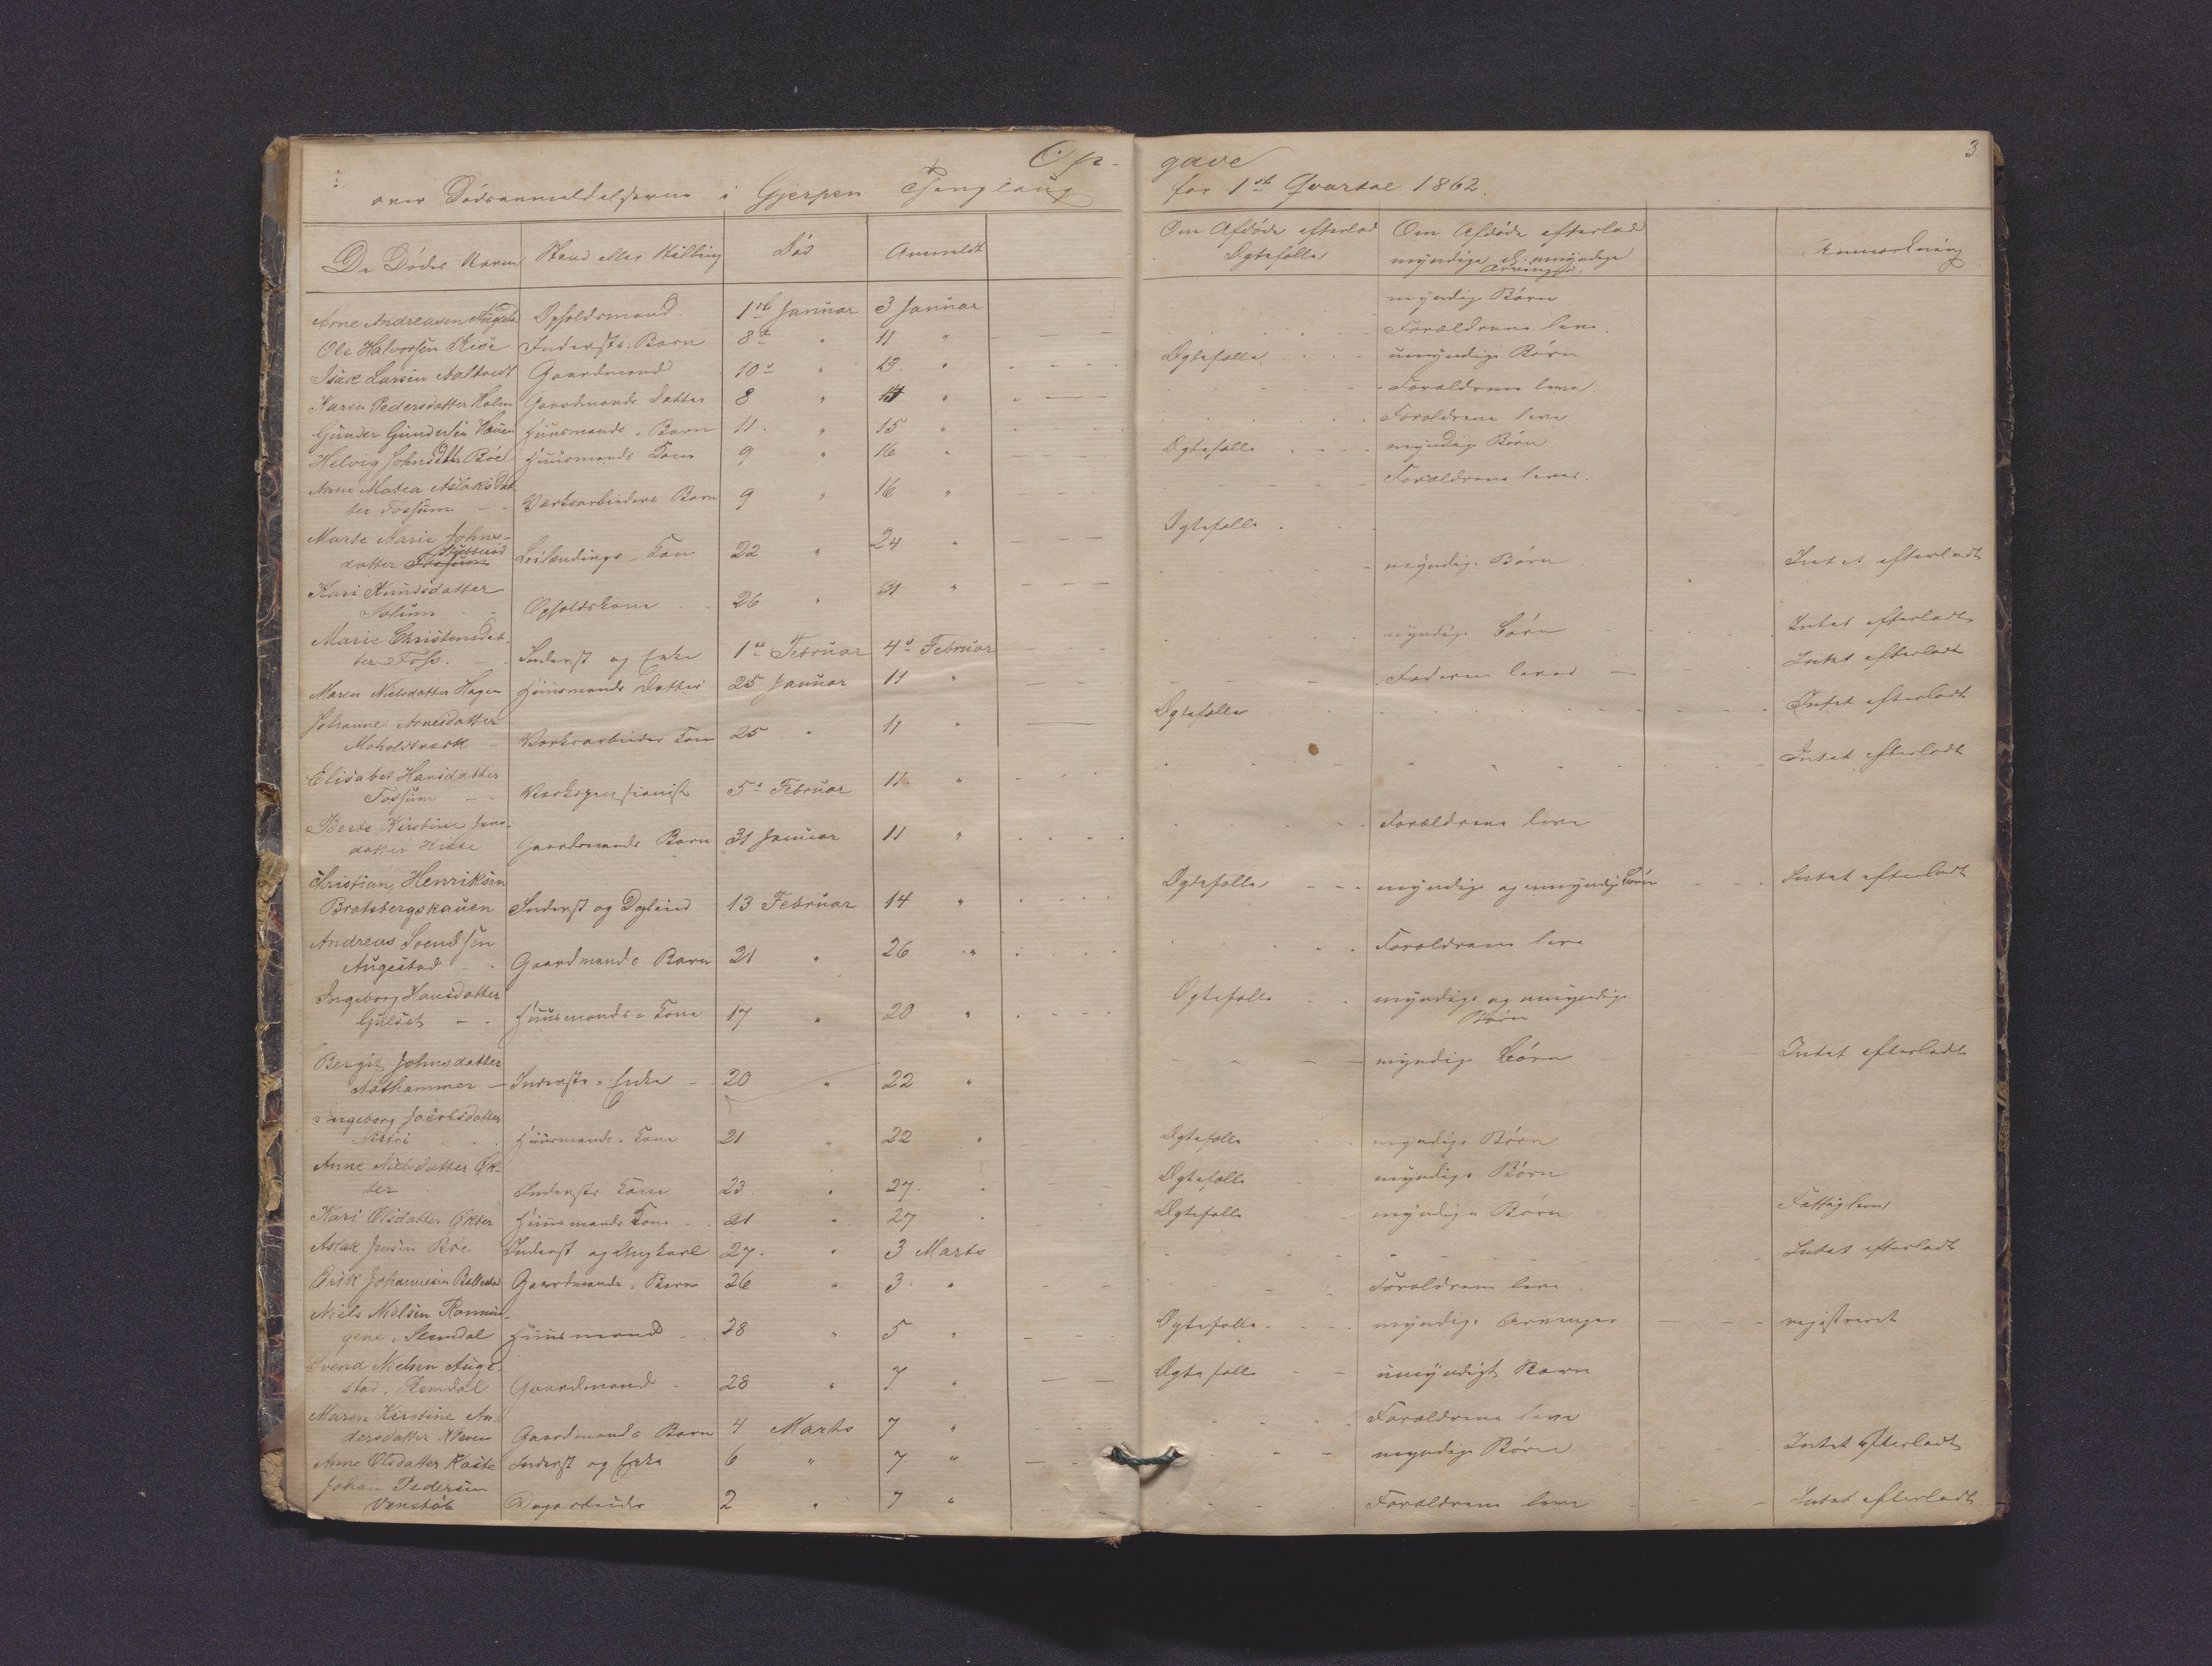 Op-
gave
3
over Dødsanmeldelserne i Gjerpen Thinglaug
for 1ste Qvartal 1862.
De Dødes Navne | Stand eller Stilling | Død | Anmeldt | Om Afdøde efterlod Ægtefælle | Om Afdøde efterlod myndige el. umyndige Arvinger. | Anmærkning
Arne Andreasen | Opholdsmand. | 1ste Januar | 3 Januar | myndige Børn
Ole Halvorsen Rise | Indersts Barn | 8de " | 11 " | Forældrene leve.
Isak Larsen | Gaardmand | 10de " | 13. " | Ægtefælle | umyndige Børn
Karen Pedersdatter Holm | Gaardmands Datter | 8 " | " | Forældrene leve
Gunder Gundersen | Huusmands Barn | 11. " | 15 " | Forældrene leve
Helvig Johnsdtr Bøe | Huusmands Kone | 9 " | 16 " | Ægtefælle | myndige Børn
Anne Matea Aslaksdat-
ter Fossum | Værksarbeiders Barn | 9 " | 16 " | Forældrene lever.
Marte Marie Johns-
datter Fossum | Leilændings Kone | 22 " | 24 " | Ægtefælle
Kari Knudsdatter
Solum | Opholdskone | 26 " | 31 " | myndige Børn | Intet efterladt
Marie Christensdat-
ter Foss. | Inderst og Enke | 1ste Februar | 4de Februar | myndige Børn | Intet efterladt
Maren Nielsdatter Hagen | Huusmands Datter | 25 Januar | 11 " | Faderen lever | Intet efterladt
Johanne Arnesdatter
| Værksarbeider Kone | 25 " | 11 " | Ægtefælle | Intet efterladt
Elisabet Hansdatter
Fossum | Værkspensionist | 5te Februar | 11 " | Intet efterladt
Berte Kirstine Jens-
datter | Gaardmands Barn | 31 Januar | 11 " | Forældrene leve
Christian Henriksen
Bratsbergskaven | Inderst og | 13 Februar | 14 " | Ægtefælle | myndige og umyndige Børn | Intet efterladt
Andreas Svendsen
Augestad | Gaardmands Barn | 21 " | 26 " | Forældrene leve
Ingeborg Hansdatter
Gulset | Huusmands Kone | 17 " | 20 " | Ægtefælle | myndige og umyndige
Børn
Bergit Johnsdatter
| Indersts Enke | 20 " | 22 " | myndige Børn | Intet efterladt
Ingeborg Jacobsdatter
| Huusmands Kone | 21 " | 22 " | Ægtefælle | myndige Børn
Anne Nielsdatter Øk-
ter | Indersts Kone | 23 " | 27. " | Ægtefælle | myndige Børn
Kari Olsdatter Økter | Huusmands Kone | 21 " | 27 " | Ægtefælle | myndige Børn | Fattiglem
Aslak Jensen Bøe | Inderst og Ungkarl | 27. " | 3 Marts | Intet efterladt
Erik Johannesen | Gaardmands Barn | 26 " | 3. " | Forældrene leve
Niels Nielsen Rønnin-
gene, Slemdal | Huusmand | 28 " | 5 " | Ægtefælle | myndige Arvinger | registreret
Svend Nielsen Auge-
stad, Slemdal | Gaardmand | 28 " | 7 " | Ægtefælle | umyndigt Barn
Maren Kirstine An-
dersdatter | Gaardmands Barn | 4 Marts | 7 " | Forældrene leve
Anne Olsdatter | Inderst og Enke | 6 " | 7 " | myndige Børn | Intet efterladt
Johan Pedersen
Venstøb | Dagarbeider | 2 " | 7 " | Forældrene leve | Intet efterladt